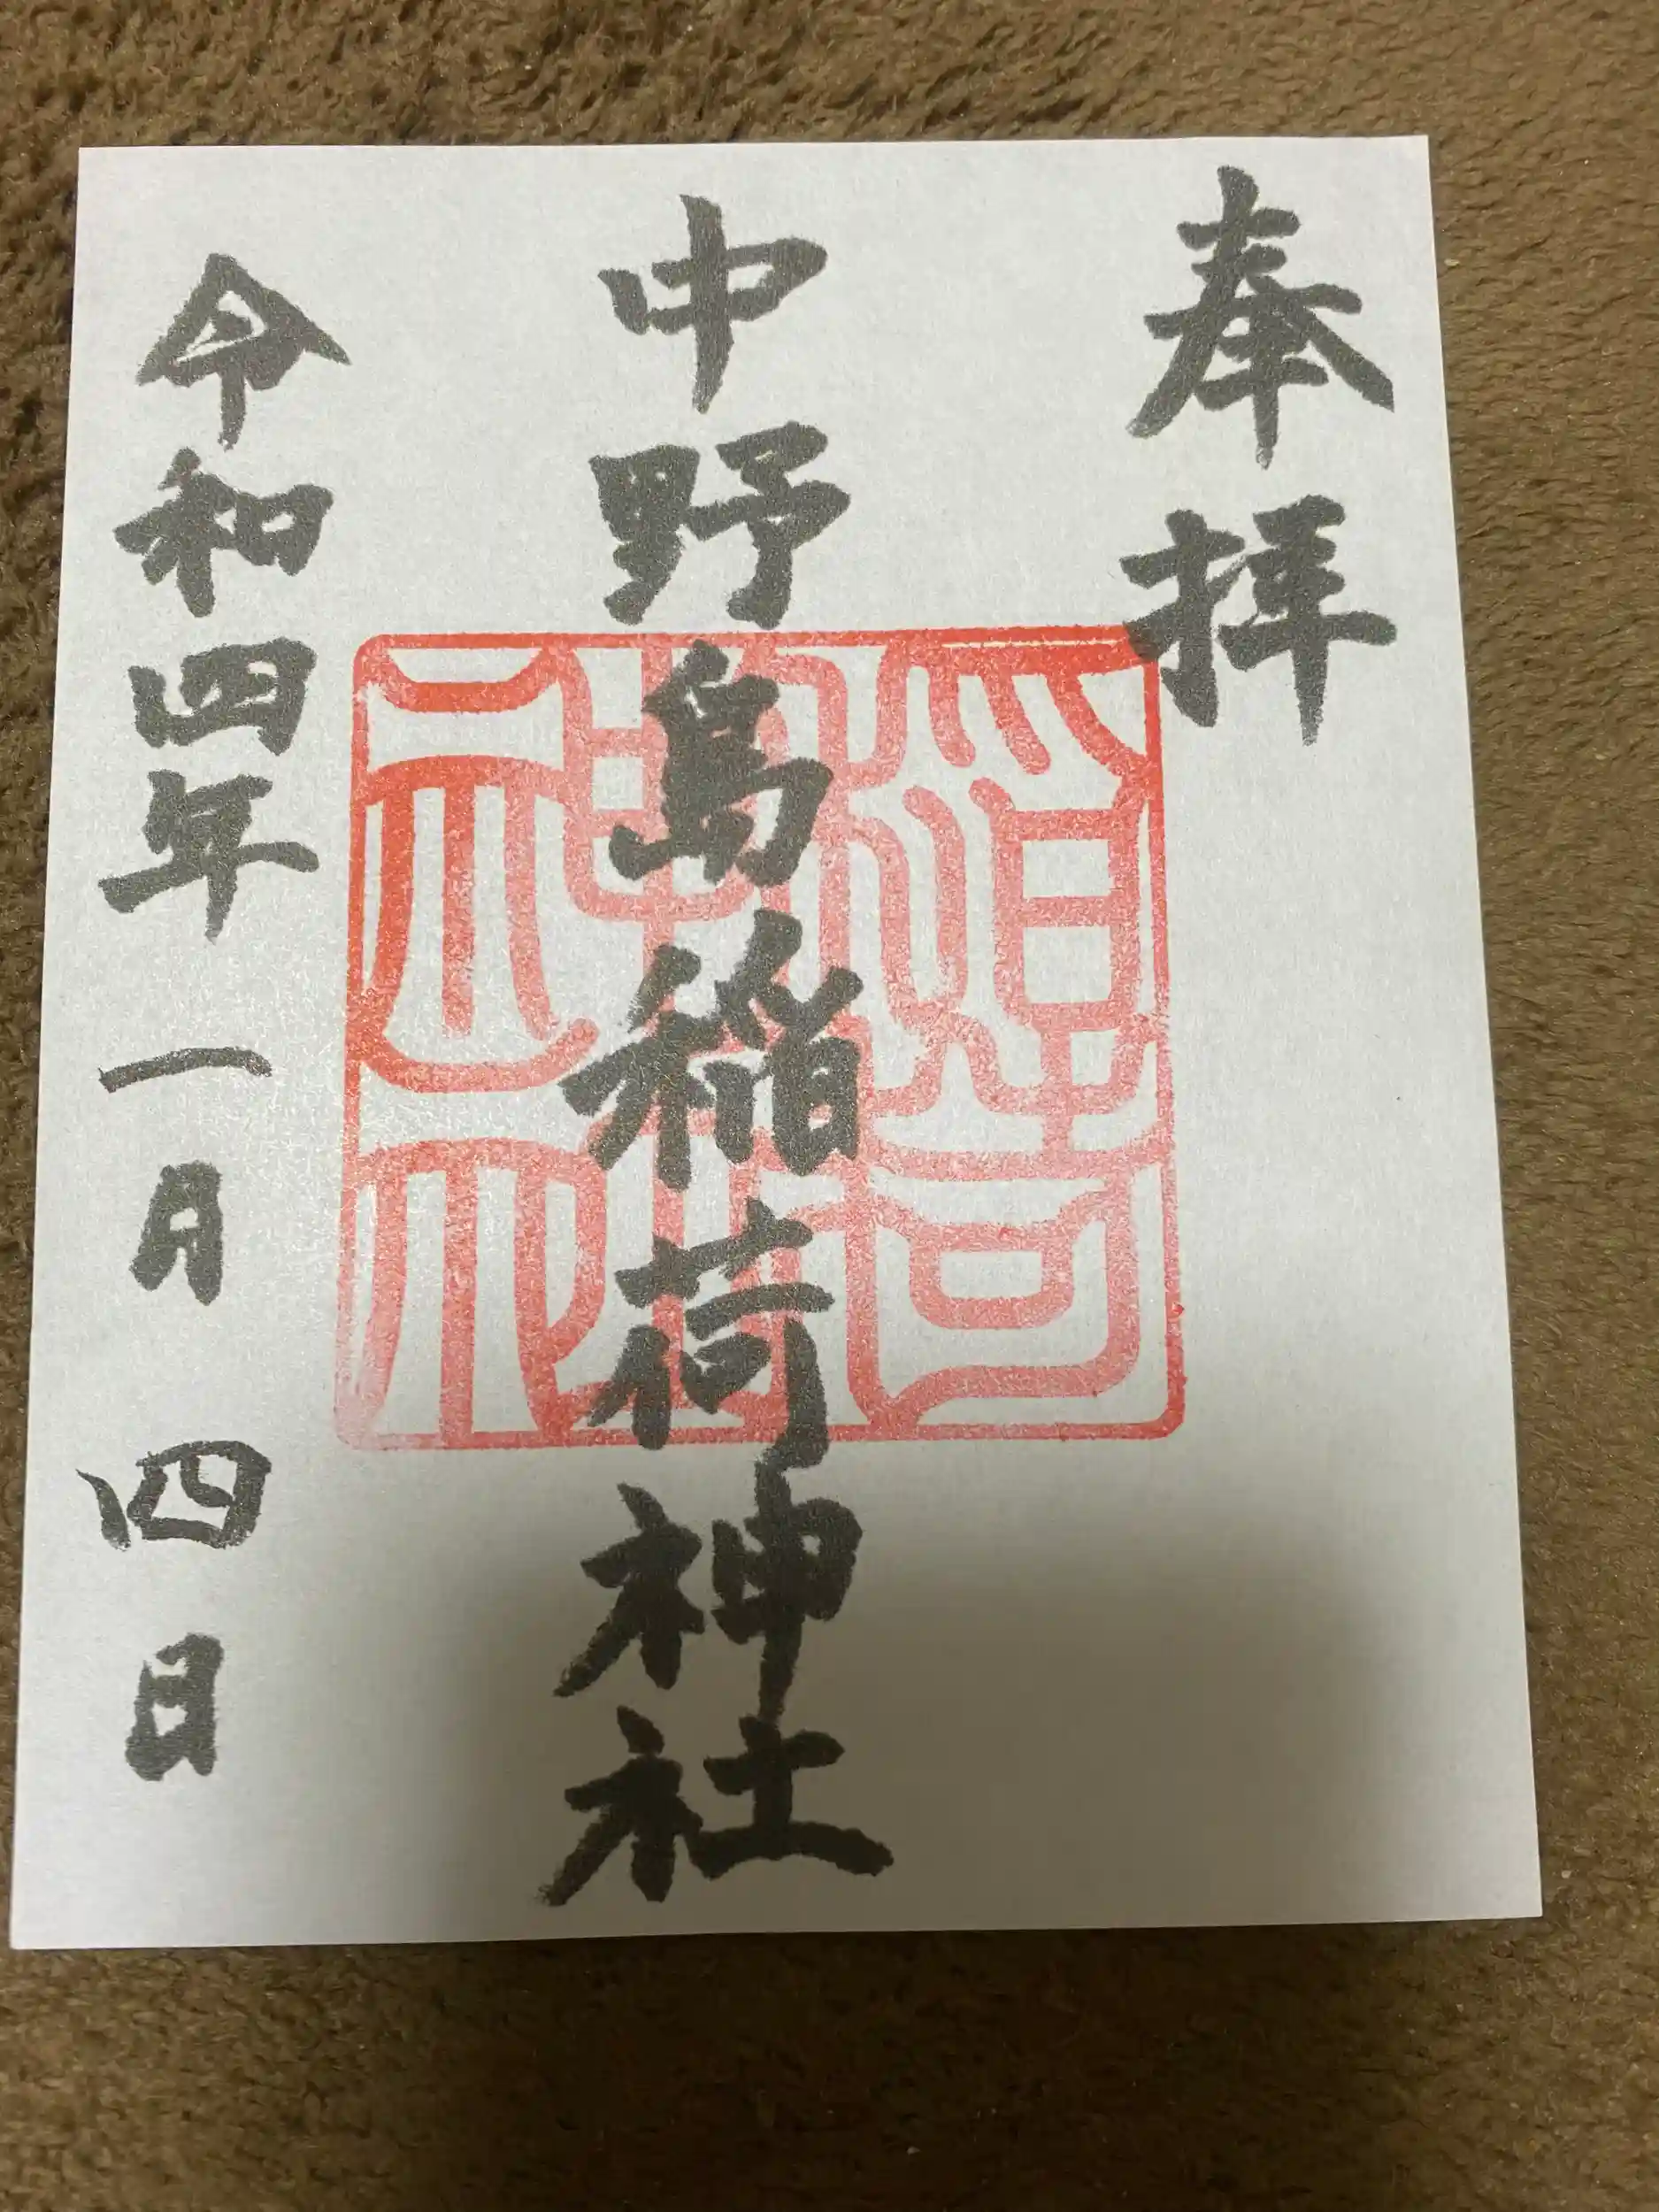 奉拝
中野島稲荷神社
稲荷神社
令和四年一月四日